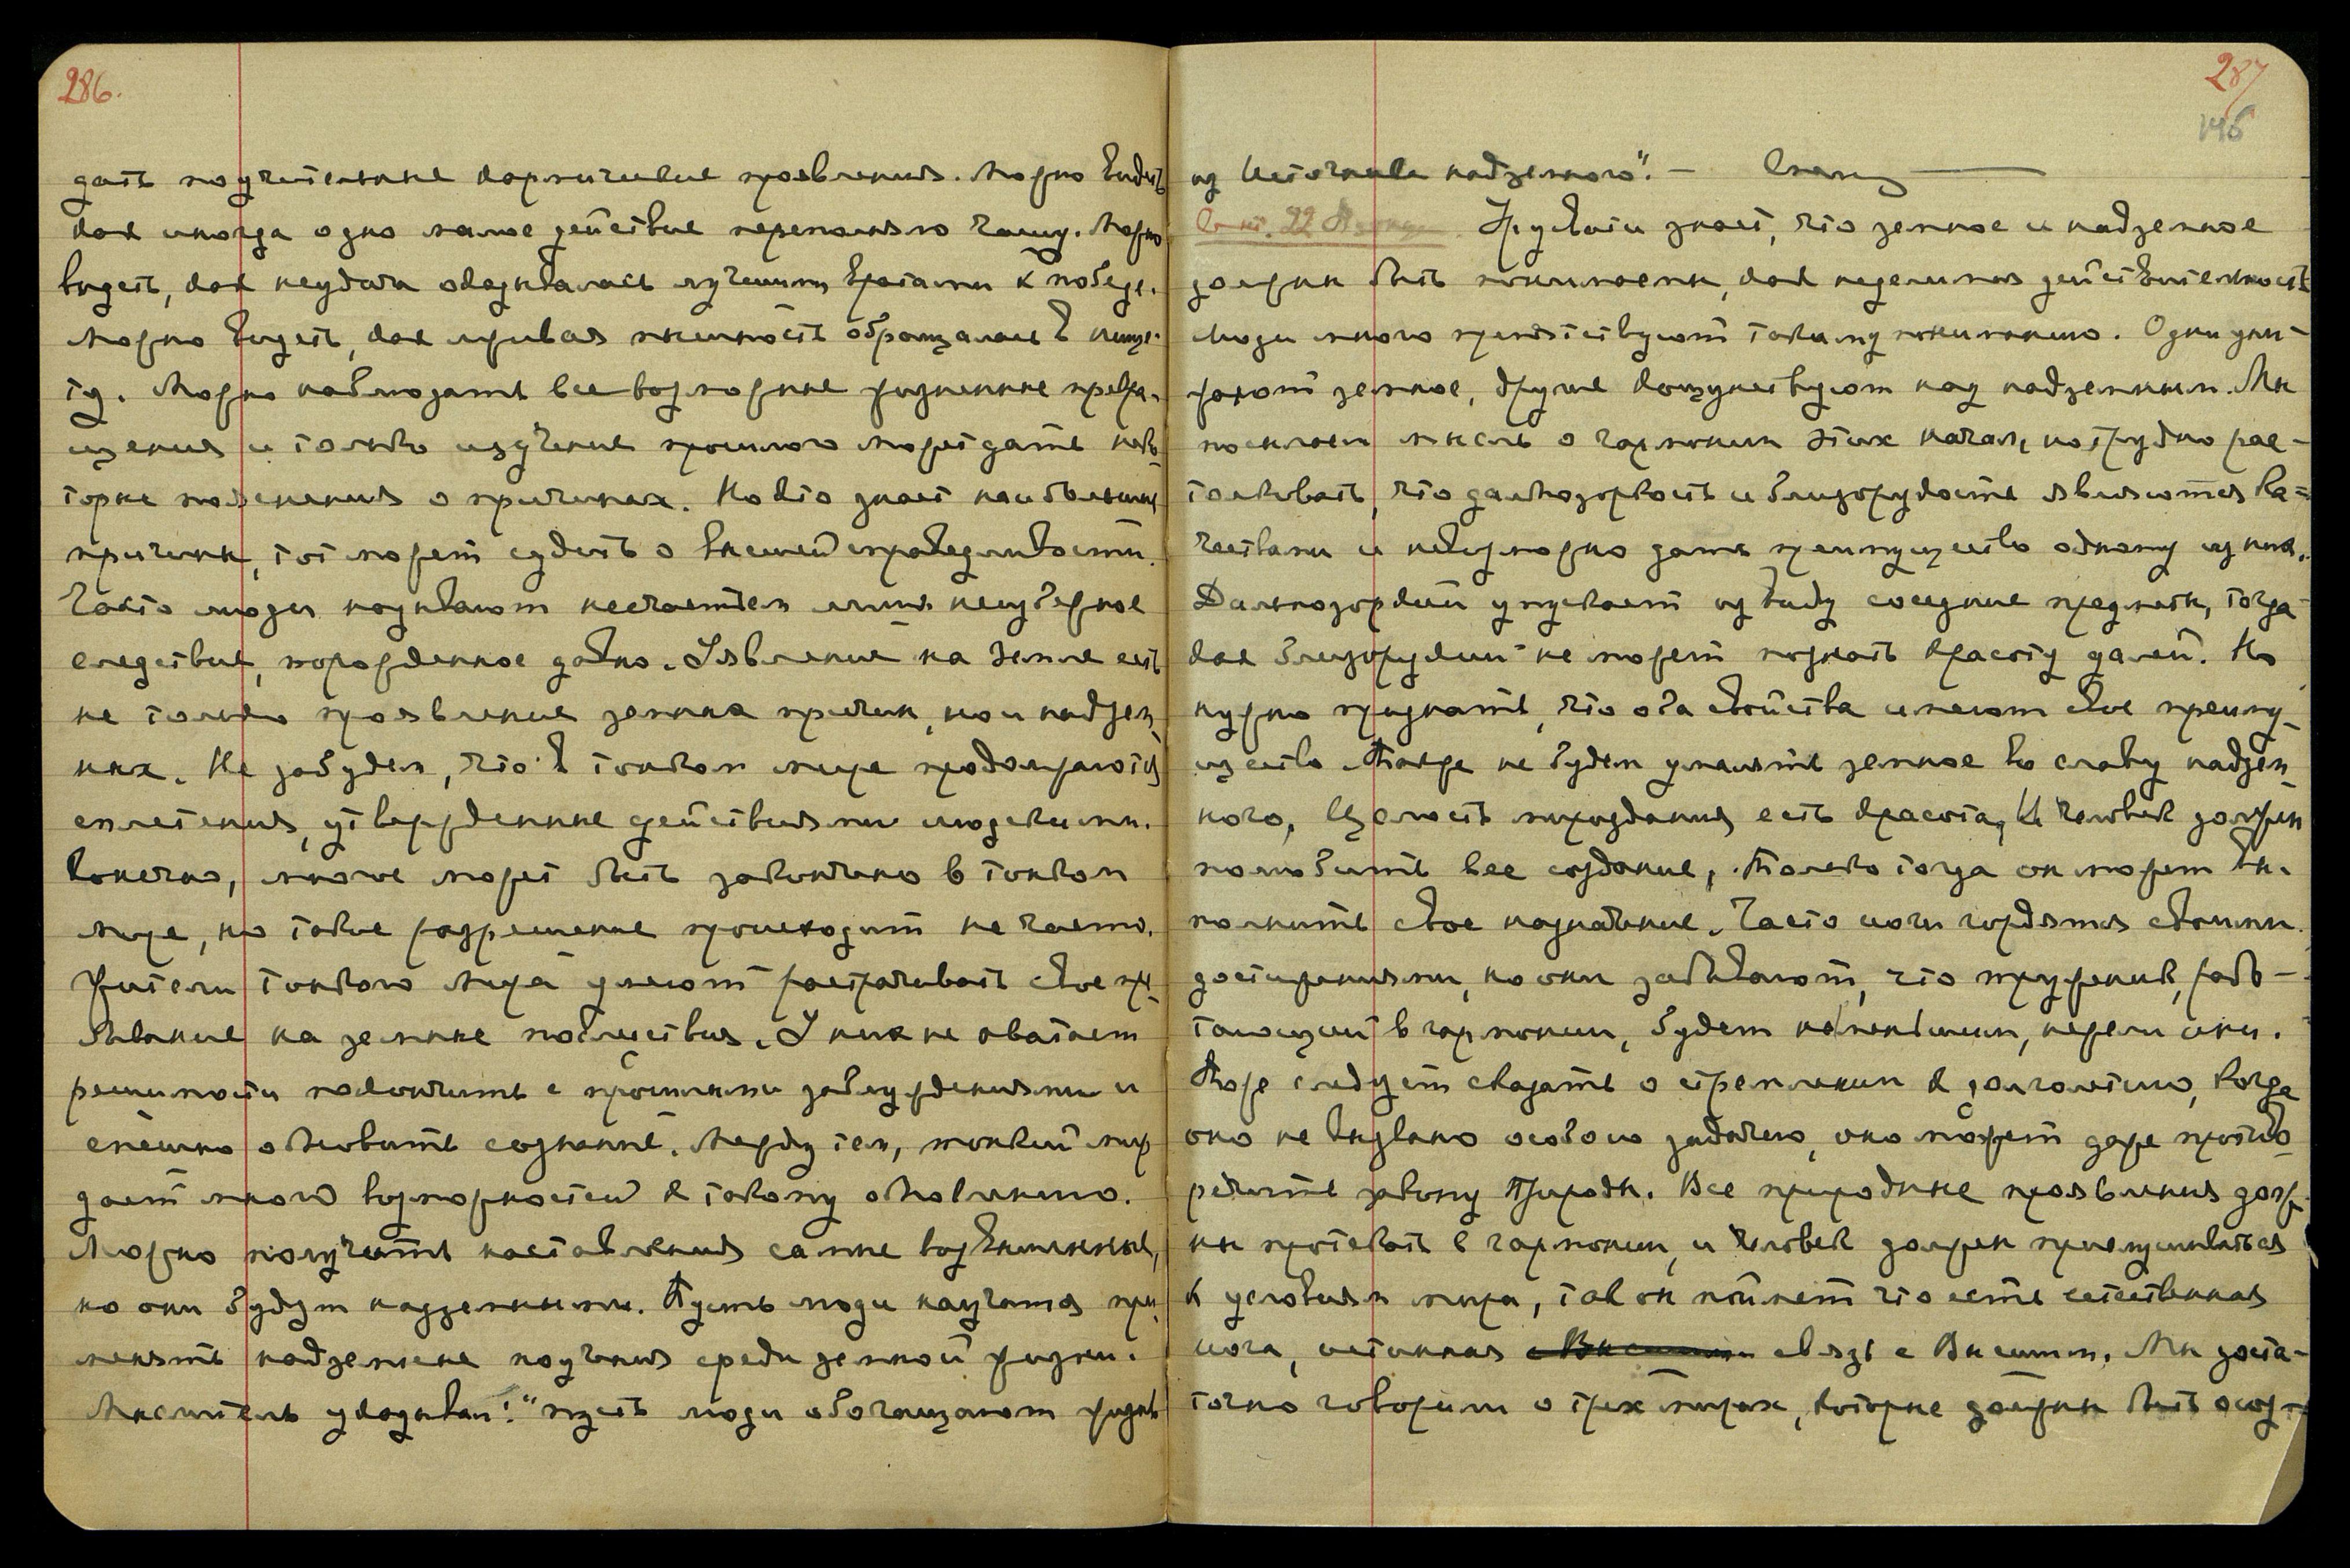 286.
дать поучительные кармические проявления. Можно видеть
как иногда одно малое действие переполняло чашу. Можно
видеть, как неудача оказывалась лучшими вратами к победе.
Можно видеть, как лживая мнимость обращалась в нище-
ту. Можно наблюдать все возможные жизненные превра-
щения и только изучение прошлого может дать неко-
торые пояснения о причинах. Но кто знает наибольшие
причины, тот может судить о высшей справедливости.
Часто люди называют несчастьем лишь неизбежное
следствие, порожденное давно. Явление на земле есть
не только проявление земных причин, но и надзем-
ных. Не забудем, что в тонком мире продолжаются
сплетения, утвержденные действиями людскими.
Конечно, многое может быть закончено в тонком
мире, но такое разрешение происходит не часто.
Жители тонкого мира умеют растрачивать свое пре-
бывание на земные пособствия. У них не хватает
решимости покончить с прошлыми заблуждениями и
спешно обновить сознание. Между тем, тонкий мир
дает много возможностей к такому обновлению.
Можно получать наставления самые возвышенные,
но они будут надземными. Пусть люди научатся при-
менять надземные поучения среди земной жизни.
Мыслитель указывал: "пусть люди обогащают жизнь
287
146
из Источника надземного". —
Урусвати знает, что земное и надземное
должны быть понимаемы, как неделимая действительность
Люди много препятствуют такому пониманию. Одни уни-
жают земное, другие кощунствуют над надземным. Мы
посылаем мысль о гармонии этих начал, но трудно рас-
толковать, что дальнозоркость и близорукость являются ка-
чествами и невозможно дать преимущество одному из них.
Дальнозоркий упускает из виду соседние предметы, тогда
как близорукий не может познать красоту далей. Но
нужно признать, что оба свойства имеют свое преиму-
щество. Также не будем умалять земное во славу надзем-
ного, Целость мироздания есть красота, И человек должен
полюбить все создание, Только тогда он может вы-
полнить свое назначение. Часто иоги гордятся своими
достижениями, но они забывают, что труженик, рабо-
тающий в гармонии, будет не меньшим, нежели они.
Тоже следует сказать о стремлении к долголетию, когда
оно не вызвано особою задачею, оно может даже противо-
речить закону Природы. Все природные проявления долж-
ны протекать в гармонии, и человек должен прислушиваться
к условиям мира, так он поймет что есть естественная
иога, истинная связь с Высшим. Мы доста-
точно говорили о трех мирах, которые должны быть осоз-